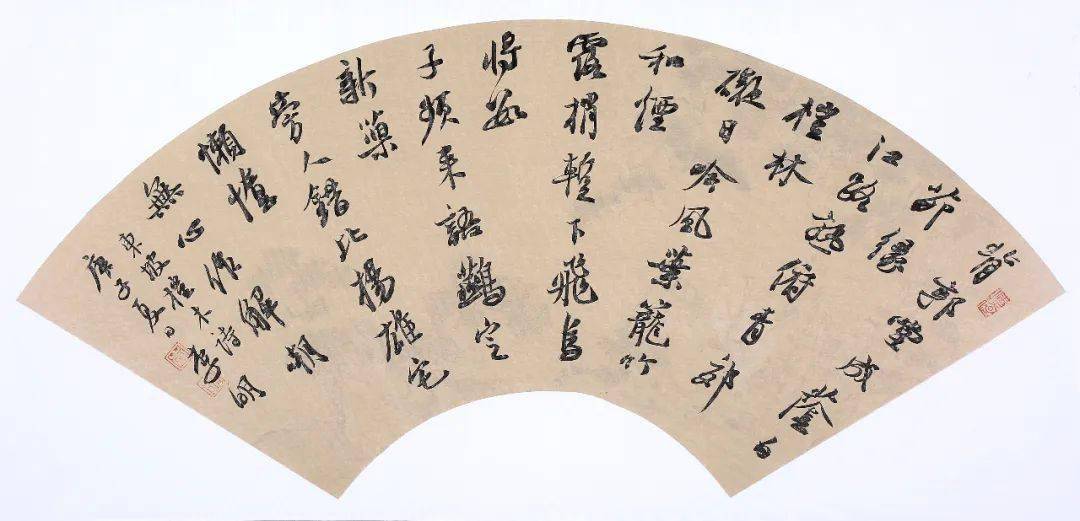 背郭堂成蔭白
茆緣
江路熟俯青郊
榿林
礙日吟風葉籠竹
和煙
露梢暫下飛烏
將數
子頻来語鷰定
新巢
旁人錯比揚雄宅
懶惰
無心作解嘲
東坡榿木詩 李明
庚子夏日